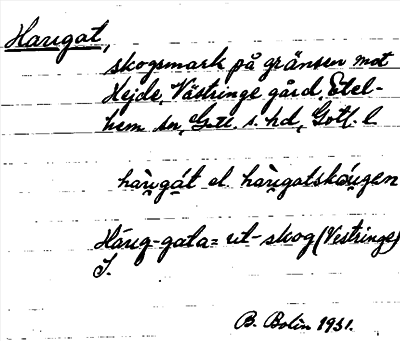 Haugat,
skogsmark på gränsen mot
Hejde, Västringe gård, Etel-
hem sn, Gotl. s. hd, Gotl. l
haugat el. haugatskaugen
Haug-gata = ut-skog (Vestringe)
I.
B. Bolin 1931.